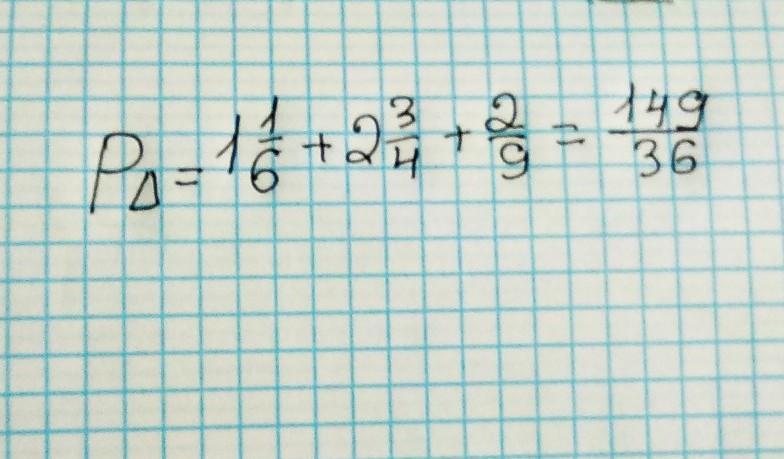 P△ = 1 1/6 + 2 3/4 + 2/9 = 149/36